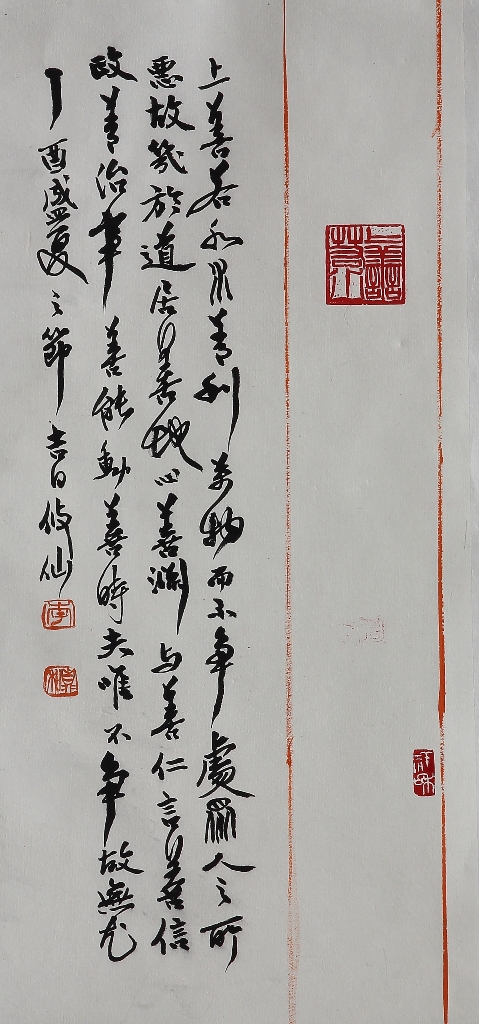 上善若水水善利萬物而不争處眾人之所
惡故幾於道居善地心善淵与善仁言善信
政善治事善能動善時夫唯不争故無尤
丁酉盛夏之節吉日攸仙
上善若水